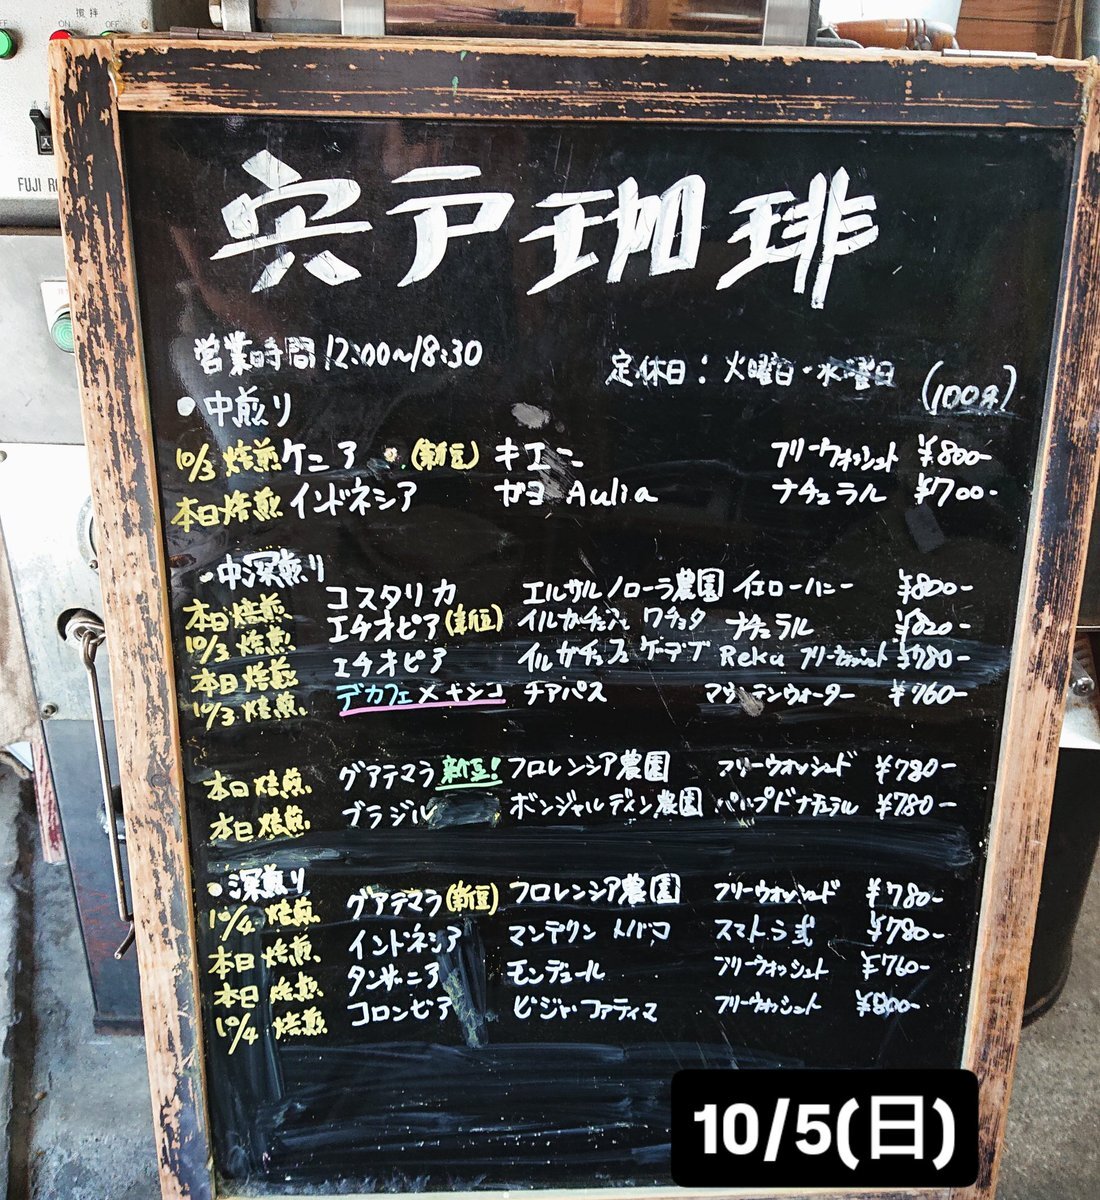 攪拌
OFF ON OFF
FUJI R
宍戸珈琲
営業時間12:00〜18:30 定休日：火曜日・水曜日
(100g)
・中煎り
10/3焙煎 ケニア (新豆) キエニ フリーウォッシュト ¥800-
本日焙煎 インドネシア ガヨ Aulia ナチュラル ¥700-
・中深煎り
本日焙煎 コスタリカ エルサルノローラ農園 イエローハニー ¥800-
10/3焙煎 エチオピア(新豆) イルガチェフェ ワチュタ ナチュラル ¥820-
本日焙煎 エチオピア イルガチェフェ ゲーデブ Reku フリーウォッシュト ¥780-
10/3焙煎 デカフェメキシコ チアパス マウンテンウォーター ¥760-
本日焙煎 グアテマラ 新豆! フロレンシア農園 フリーウォッシェド ¥780-
本日焙煎 ブラジル ボンジャルディン農園 パルプドナチュラル ¥780-
・深煎り
10/4焙煎 グアテマラ(新豆) フロレンシア農園 フリーウォッシェド ¥780-
本日焙煎 インドネシア マンデリン トバコ スマトラ式 ¥780-
本日焙煎 タンザニア モンデュール フリーウォッシュト ¥760-
10/4焙煎 コロンビア ビジャファティマ フリーウォッシュト ¥800-
10/5(日)